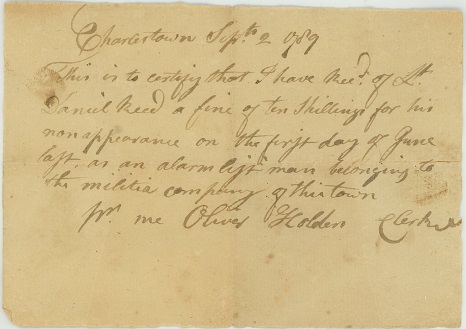 Charlestown Septr. 2 1789
This is to certify that I have Rec'd. of Lt.
Daniel Reed a fine of ten Shillings for his
nonappearance on the first day of June
last, as an alarm list man belonging to
the militia company of this town
pr. me Oliver Holden Clerk